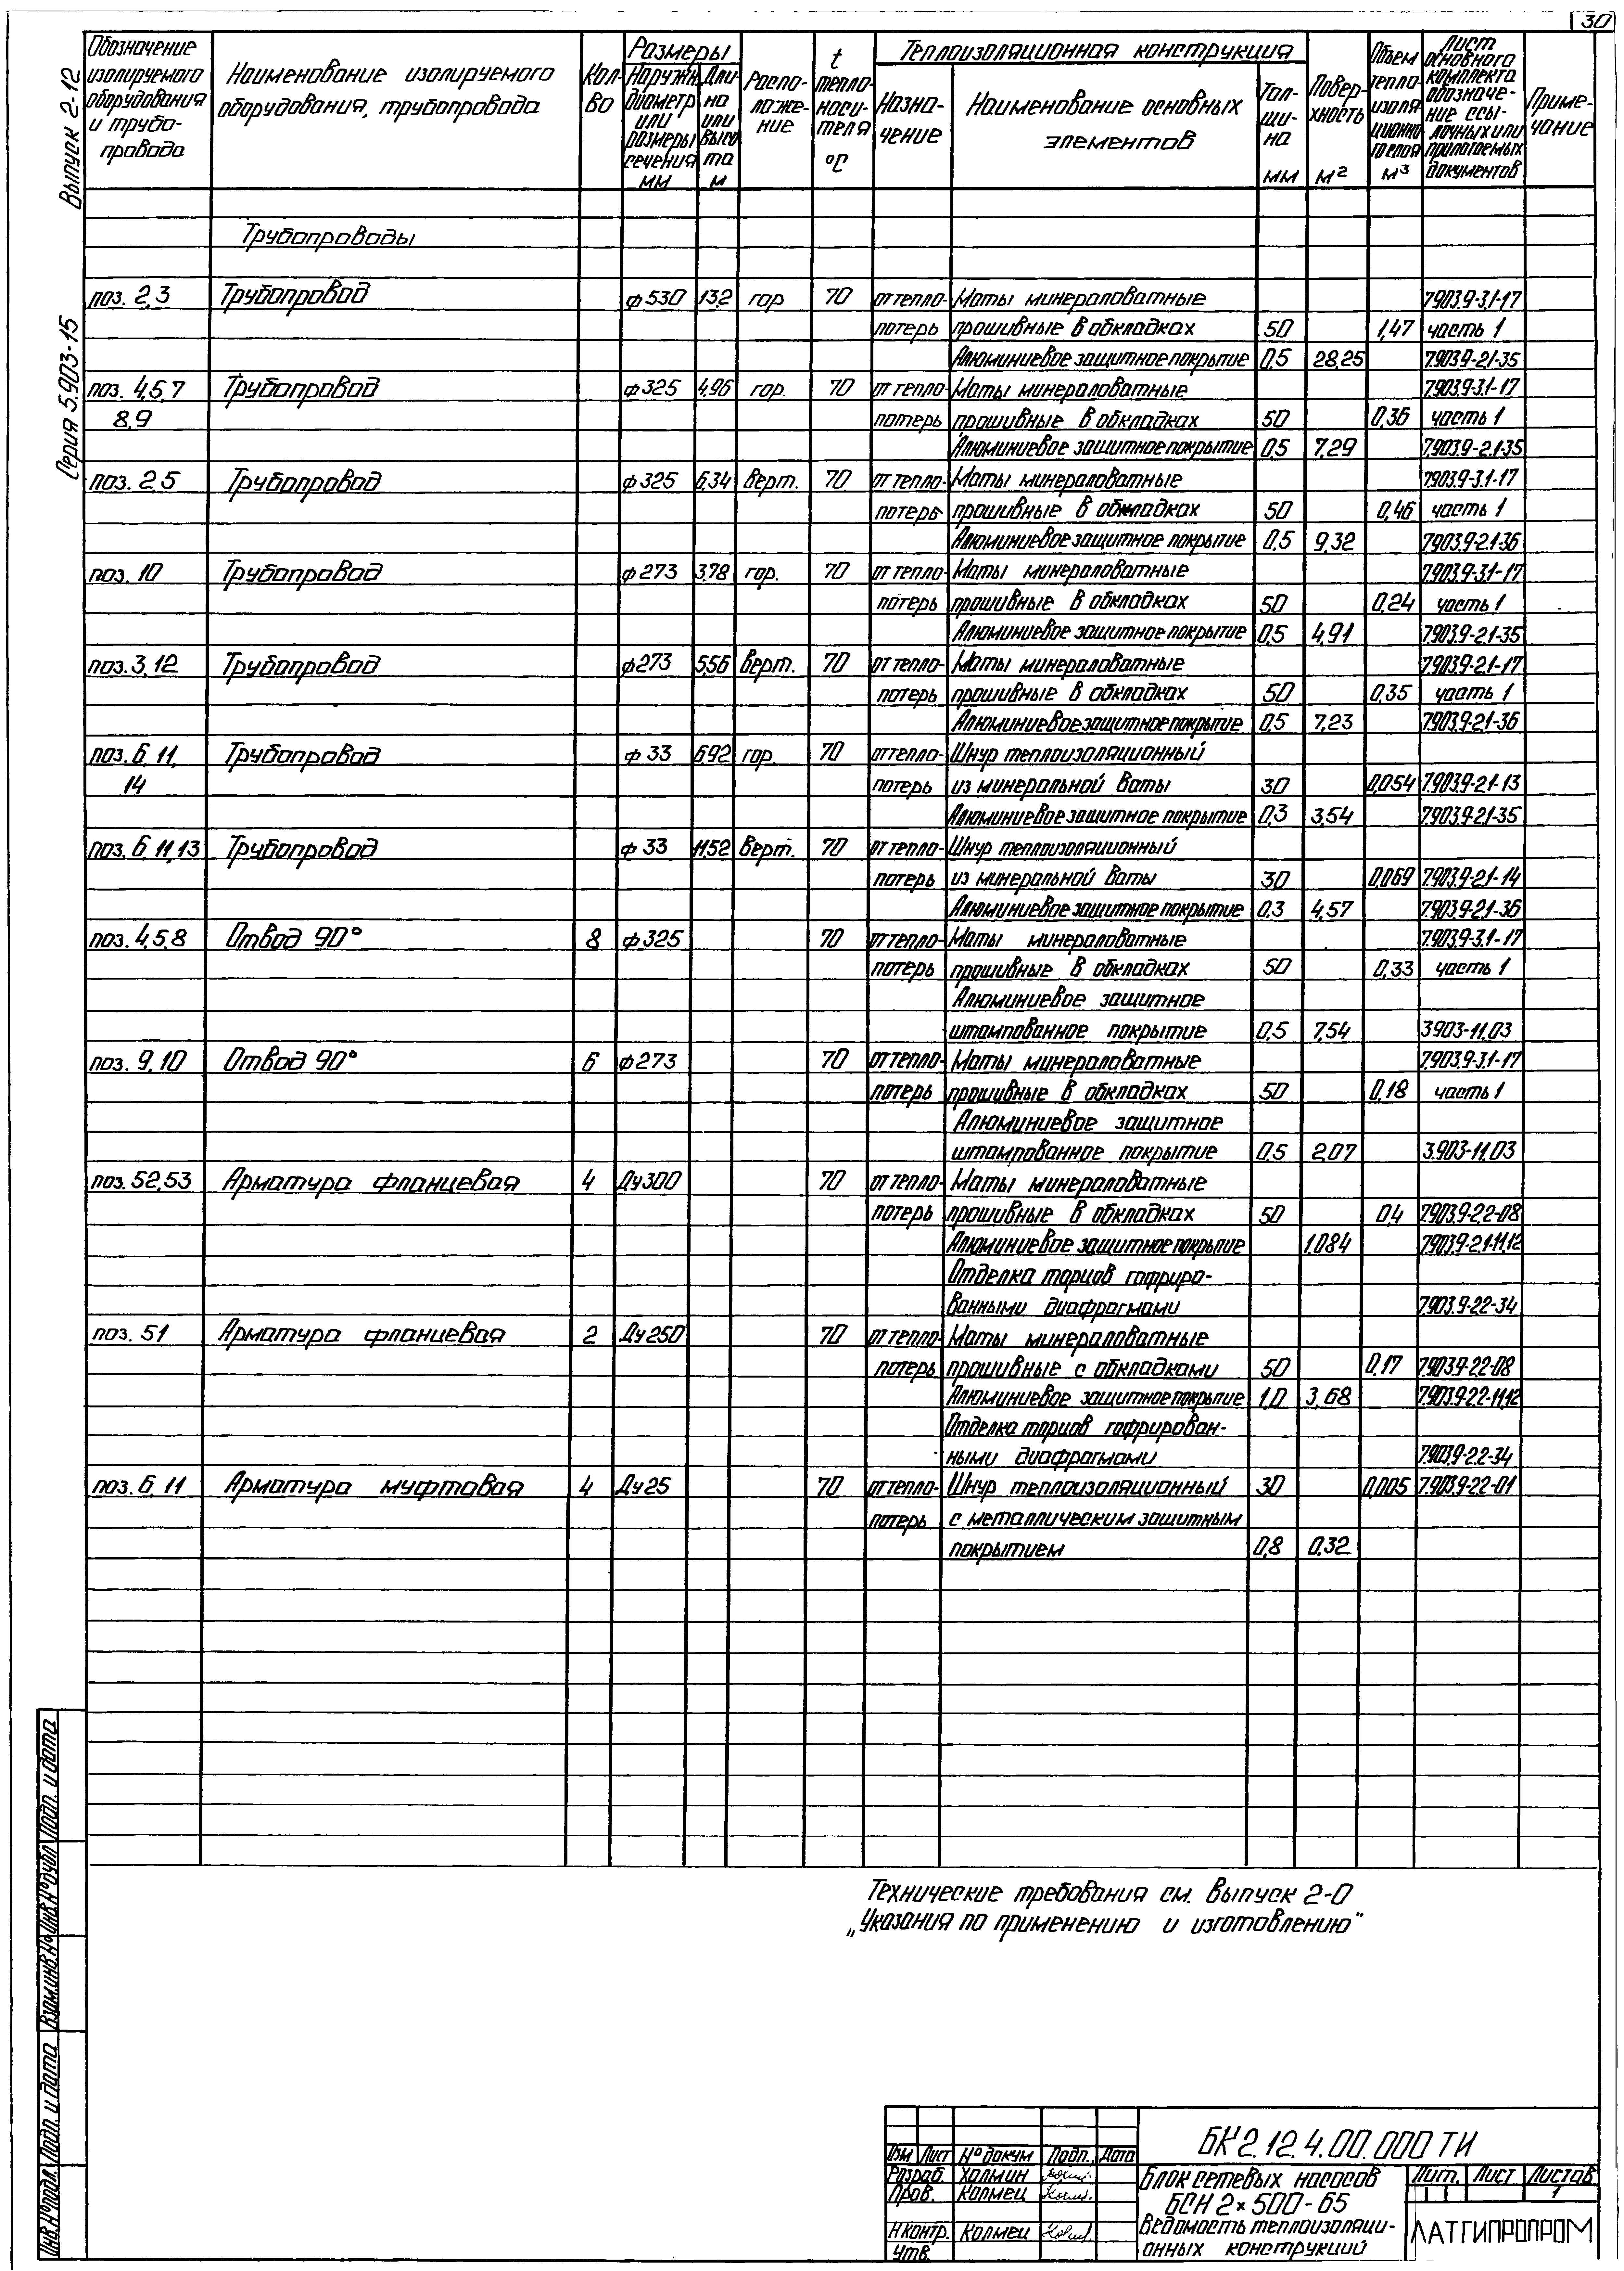 30
Выпуск 2-12
Серия 5.903-15
Обозначение изолируемого оборудования и трубо-провода
Наименование изолируемого оборудования, трубопровода
Кол-во
Размеры
Наружн. диаметр или размеры сечения мм
Дли-на или высо та м
Распо-ложе-ние
t тепло-носи-теля °С
Теплоизоляционная конструкция
Назна-чение
Наименование основных элементов
Тол-щи-на мм
Повер-хность м²
Объем тепло-изоля-ционно го слоя м³
Лист основного комплекта обозначе-ние ссы-лочных или прилагаемых документов
Приме-чание
Трубопроводы
поз. 2,3 Трубопровод ф530 13,2 гор 70 от тепло- Маты минераловатные 7.903.9-3.1-17
потерь прошивные в обкладках 50 1,47 часть 1
Алюминиевое защитное покрытие 0,5 28,25 7.903.9-2.1-35
поз. 4,5,7 Трубопровод ф325 4,96 гор. 70 от тепло- Маты минераловатные 7.903.9-3.1-17
8,9 потерь прошивные в обкладках 50 0,36 часть 1
Алюминиевое защитное покрытие 0,5 7,29 7.903.9-2.1-35
поз. 2,5 Трубопровод ф325 6,34 верт. 70 от тепло- Маты минераловатные 7.903.9-3.1-17
потерь прошивные в обкладках 50 0,46 часть 1
Алюминиевое защитное покрытие 0,5 9,32 7.903.9-2.1-36
поз. 10 Трубопровод ф273 3,78 гор. 70 от тепло- Маты минераловатные 7.903.9-3.1-17
потерь прошивные в обкладках 50 0,24 часть 1
Алюминиевое защитное покрытие 0,5 4,91 7.903.9-2.1-35
поз. 3,12 Трубопровод ф273 5,56 верт. 70 от тепло- Маты минераловатные 7.903.9-2.1-17
потерь прошивные в обкладках 50 0,35 часть 1
Алюминиевое защитное покрытие 0,5 7,23 7.903.9-2.1-36
поз. 6, 11, Трубопровод ф 33 6,92 гор. 70 от тепло- Шнур теплоизоляционный
14 потерь из минеральной ваты 30 0,054 7.903.9-2.1-13
Алюминиевое защитное покрытие 0,3 3,54 7.903.9-2.1-35
поз. 6, 11, 13 Трубопровод ф 33 11,52 верт. 70 от тепло- Шнур теплоизоляционный
потерь из минеральной ваты 30 0,069 7.903.9-2.1-14
Алюминиевое защитное покрытие 0,3 4,57 7.903.9-2.1-36
поз. 4,5,8 Отвод 90° 8 ф325 70 от тепло- Маты минераловатные 7.903.9-3.1-17
потерь прошивные в обкладках 50 0,33 часть 1
Алюминиевое защитное
штампованное покрытие 0,5 7,54 3.903-11.03
поз. 9, 10 Отвод 90° 6 ф273 70 от тепло- Маты минераловатные 7.903.9-3.1-17
потерь прошивные в обкладках 50 0,18 часть 1
Алюминиевое защитное
штампованное покрытие 0,5 2,07 3.903-11.03
поз. 52,53 Арматура фланцевая 4 Ду300 70 от тепло- Маты минераловатные
потерь прошивные в обкладках 50 0,4 7.903.9-2.2-08
Алюминиевое защитное покрытие 1,084 7.903.9-2.1-11,12
Отделка торцов гофриро-
ванными диафрагмами 7.903.9-2.2-34
поз. 51 Арматура фланцевая 2 Ду250 70 от тепло- Маты минераловатные
потерь прошивные с обкладками 50 0,17 7.903.9-2.2-08
Алюминиевое защитное покрытие 1,0 3,68 7.903.9-2.2-11,12
Отделка торцов гофрирован-
ными диафрагмами 7.903.9-2.2-34
поз. 6, 11 Арматура муфтовая 4 Ду25 70 от тепло- Шнур теплоизоляционный 30 0,005 7.903.9-2.2-01
потерь с металлическим защитным
покрытием 0,8 0,32
Технические требования см. выпуск 2-0
„Указания по применению и изготовлению"
Инв.№ подл. Подп. и дата Взам.инв.№ Инв.№ дубл. Подп. и дата
Изм Лист № докум Подп. Дата
Разраб. Холмин
Пров. Колмец
Н контр. Колмец
Утв.
БК 2.12.4.00.000 ТИ
Блок сетевых насосов
БСН 2×500-65
Ведомость теплоизоляци-
онных конструкций
Лит. Лист Листов
1
ЛАТГИПРОПРОМ